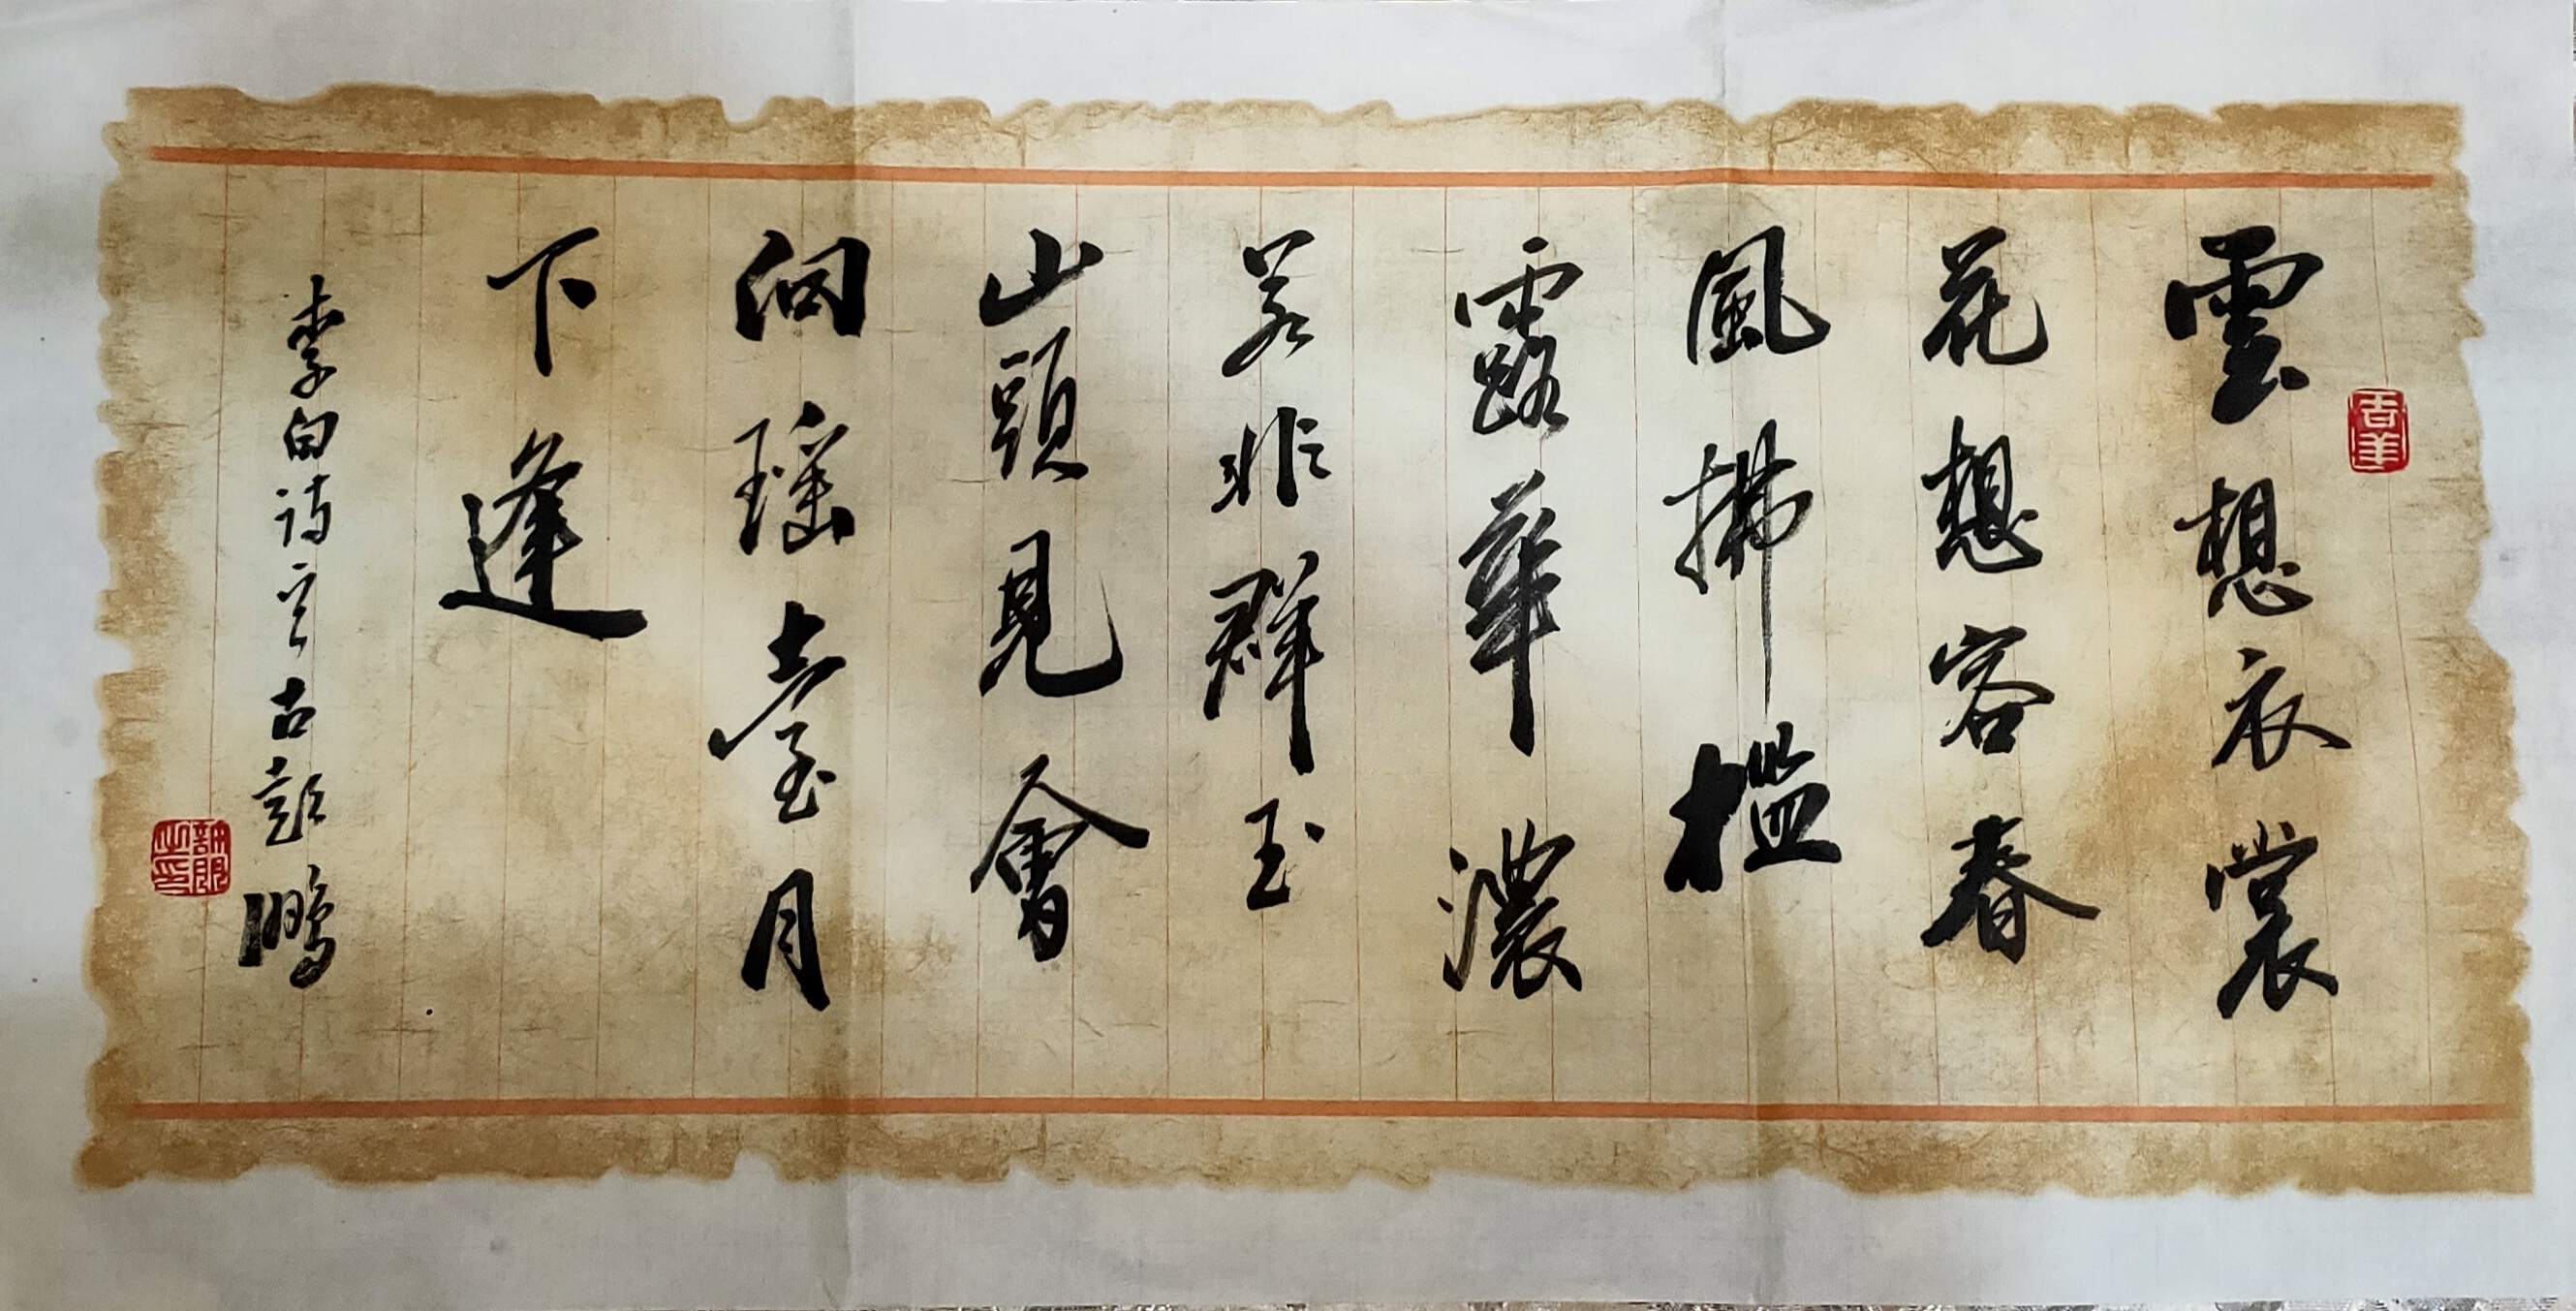 雲想衣裳
花想容春
風拂檻
露華濃
若非群玉
山頭見會
向瑶臺月
下逢
李白詩一首 古彭 鹏